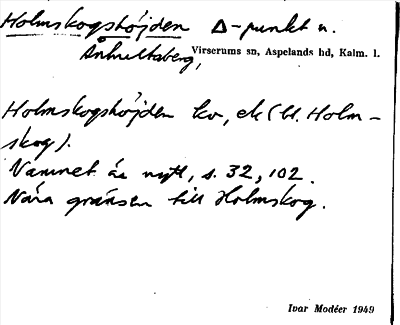 Holmskogshöjden Δ-punkt n.
Virserums sn, Aspelands hd, Kalm. l.
Holmskogshöjden kv, ek (bl. Holm-
skog).
Namnet är nytt, s. 32, 102.
Nära gränsen till Holmskog.
Ivar Modéer 1949